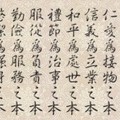 仁愛爲接物之本
信義爲立業之本
和平爲處世之本
禮節爲治事之本
服從爲負責之本
勤儉爲服務之本